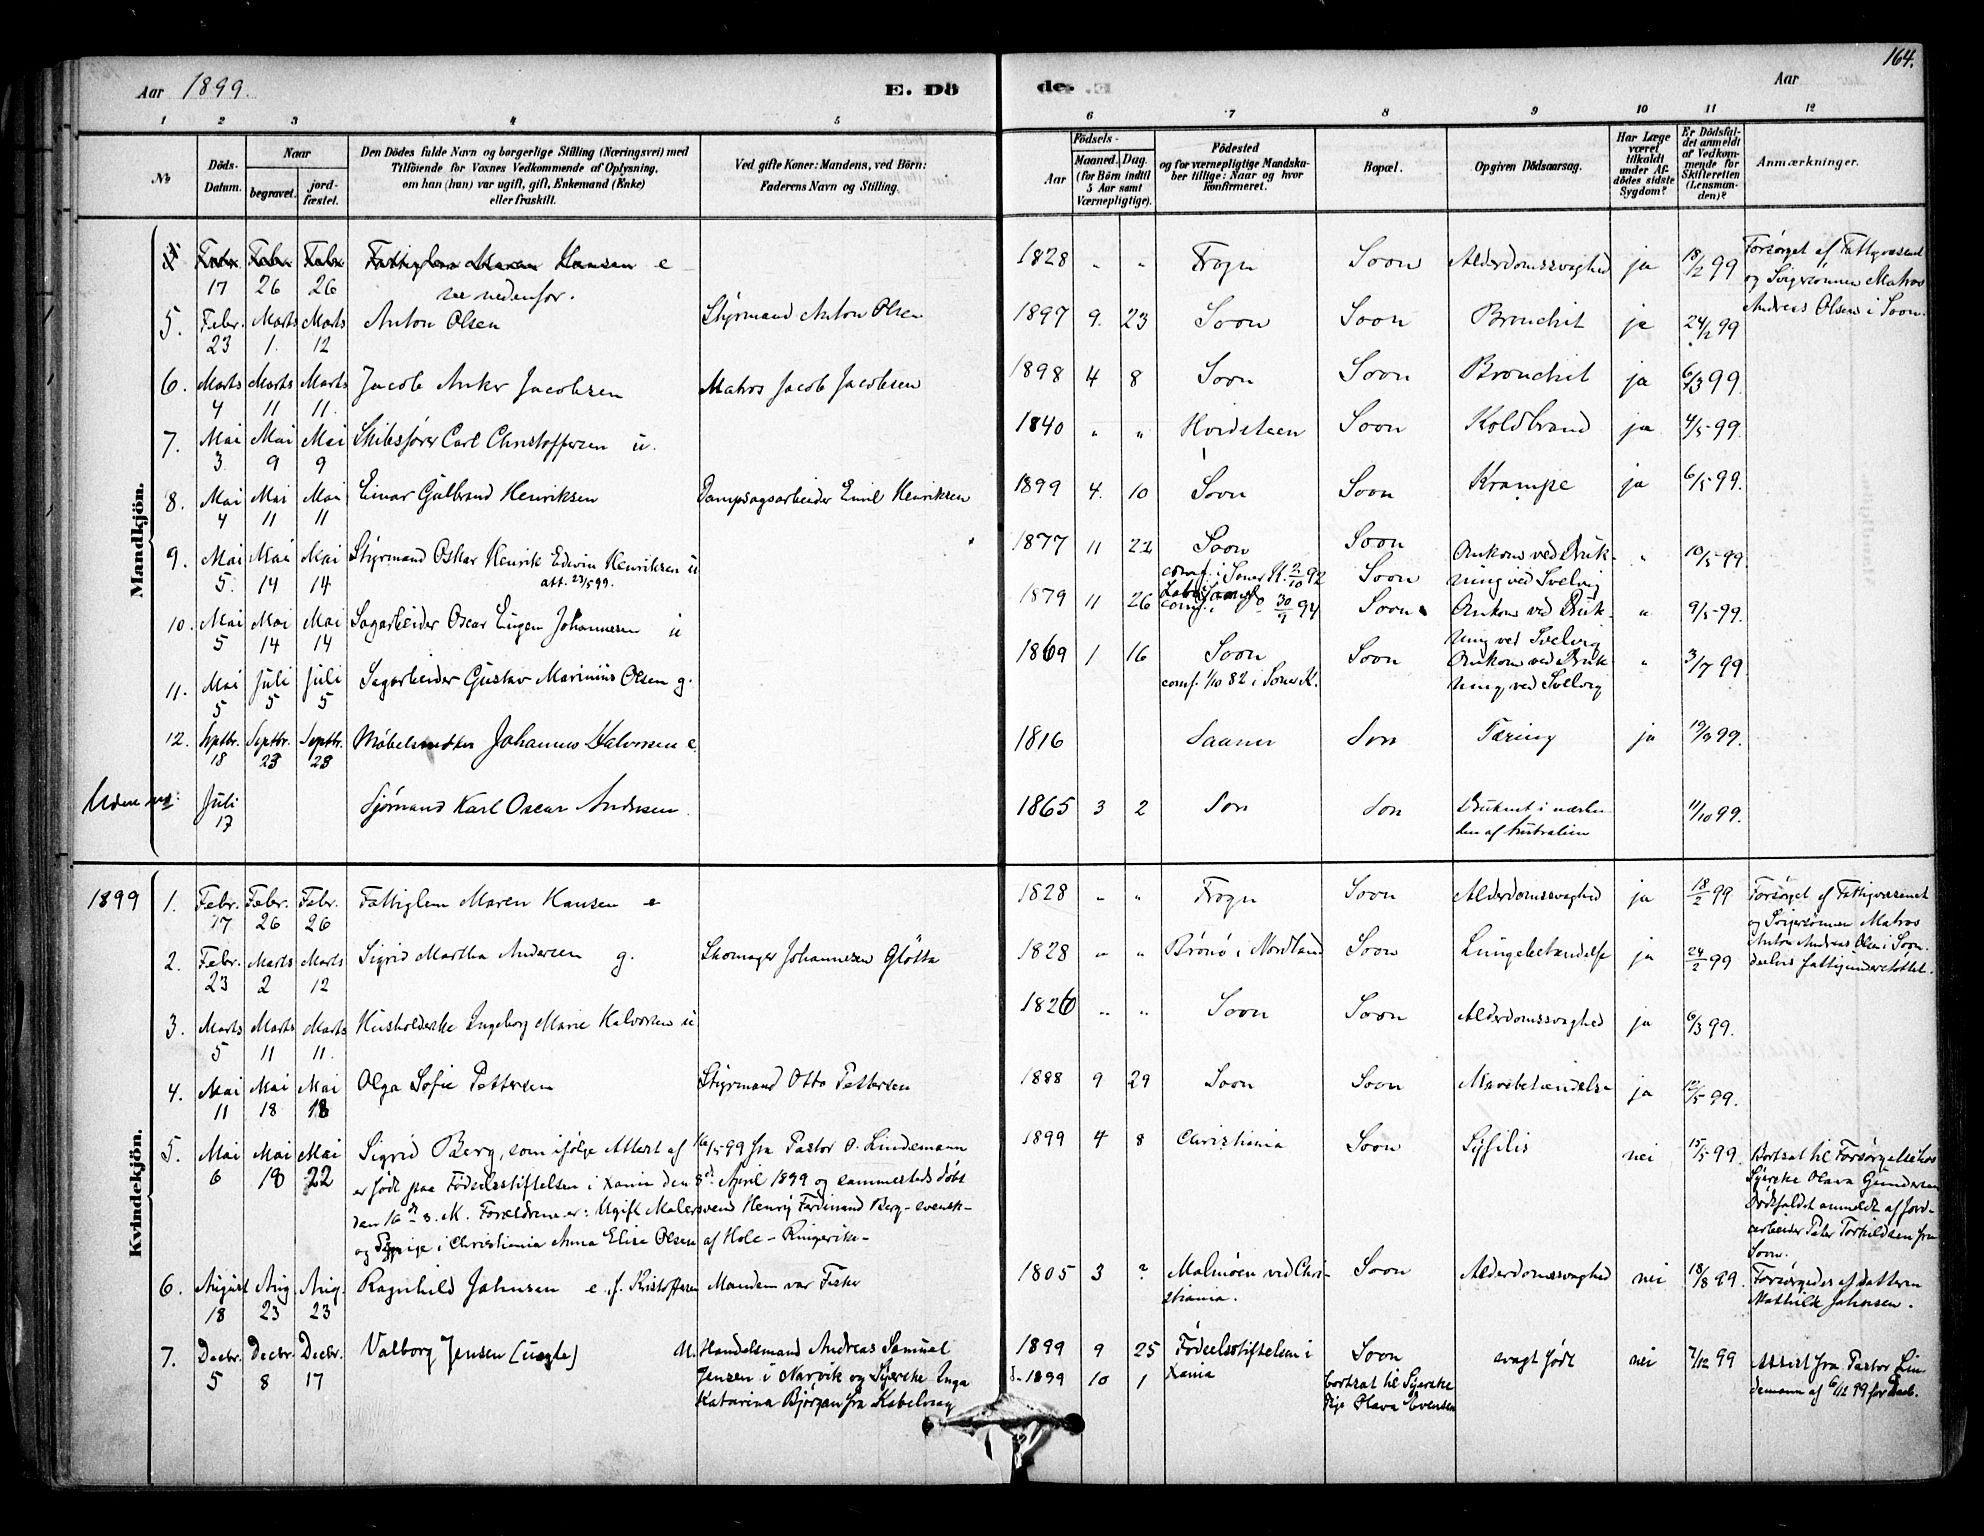 164.
Aar 1899. E. Dö de. Aar
1 2 3 4 5 6 7 8 9 10 11 12
No
Döds-Datum.
Naar
begravet.
jord-fæstet.
Den Dödes fulde Navn og borgerlige Stilling (Næringsvei) med
Tilföiende for Voxnes Vedkommende af Oplysning,
om han (hun) var ugift, gift, Enkemand (Enke)
eller fraskilt.
Ved gifte Koner: Mandens, ved Börn:
Faderens Navn og Stilling.
Födsels-
Aar
Maaned. Dag.
(for Börn indtil
5 Aar samt
Værnepligtige).
Födested
og for værnepligtige Mandska-
ber tillige: Naar og hvor
konfirmeret.
Bopæl.
Opgiven Dödsaarsag.
Har Læge
været
tilkaldt
under Af-
dödes sidste
Sygdom?
Er Dödsfal-
det anmeldt
af Vedkom-
mende for
Skifteretten
(Lensman-
den)?
Anmærkninger.
Mandkjön.
Febr. Febr. Febr. Fattiglem Maren Hansen e 1828 " " Frogn Soon Alderdomssvaghed ja 18/2 99 Forsørget af Fattigvæsenet
17 26 26 see nedenfor. og Svigersønnen Matros
Andreas Olsen i Soon.
5. Febr. Marts Marts Anton Olsen Styrmand Anton Olsen 1897 9. 23 Soon Soon Bronchit ja 24/2 99
23 1. 12
6. Marts Marts Marts Jacob Anker Jacobsen Matros Jacob Jacobsen 1898 4 8 Soon Soon Bronchit ja 6/3 99
4 11 11.
7. Mai Mai Mai Skibsfører Carl Christoffersen u. 1840 " " Hvidsteen Soon Koldbrand ja 4/5 99.
3. 9 9
8. Mai Mai Mai Einar Gulbrand Henriksen Dampsagsarbeider Emil Henriksen 1899 4. 10 Soon Soon Krampe ja 6/5 99.
4 11 11
9. Mai Mai Mai Styrmand Oskar Henrik Edvin Henriksen u 1877 11 22 Soon Soon Omkom ved Druk- " 10/5 99.
5. 14 14 att. 23/5 99. conf. i Soner K. 2/10 92 Soon ning ved Svelvig
10. Mai Mai Mai Sagarbeider Oscar Eugen Johannesen u 1879 11 26 conf. i 30/9 94 Soon Omkom ved Druk- " 9/5 99.
5 14 14 ning ved Svelvig
11. Mai Juli Juli Sagarbeider Gustav Marinius Olsen g. 1869 1 16 Soon Soon Omkom ved Druk- " 3/7 99
5 5 5 conf. 1/10 82 i Soner K. ning ved Svelvig
12. Septbr. Septbr. Septbr. Møbelsnedker Johannes Halvorsen e 1816 Saaner Son Tæring ja 19/9 99.
18 23 23
Uden no: Juli Sjømand Karl Oscar Andresen. 1865 3 2 Son Son Druknet i nærhe- 11/10 99.
17 den af Australien
1899
Kvindekjön.
1. Febr. Febr. Febr. Fattiglem Maren Hansen e 1828 " " Frogn Soon Alderdomssvaghed ja 18/2 99 Forsørget af Fattigvæsenet
17 26 26 og Svigersønnen Matros
Anton Andreas Olsen i Soon.
2. Febr. Marts Marts Sigrid Martha Andersen g. Skomager Johannesen Gløtta 1828 " " Brønø i Nordland Soon Lungebetændelse ja 24/2 99 deelvis fattigunderstøttet.
23 2 12
3. Marts Marts Marts Husholderske Ingeborg Marie Halvorsen u 1826 " " Soon Soon Alderdomssvaghed ja 6/3 99.
5 11 11.
4. Mai Mai Mai Olga Sofie Pettersen Styrmand Otto Pettersen 1888 9 29 Soon Soon Mavebetændelse ja 12/5 99.
11 18 18
5. Mai Mai Mai Sigrid Berg, som ifølge Attest af 16/5 99 fra Pastor O. Lindemann 1899 4 8 Christiania Soon Syfilis nei 15/5 99. Bortsat til Forsørgelse hos
6 18 22 er født paa Fødselsstiftelsen i Xania den 8de April 1899 og sammesteds døbt Syerske Olava Gundersen
den 16de s. M. Forældrene er: Ugift Malersvend Henrij Ferdinand Berg – svensk – Dødsfaldet anmeldt af Jord-
og Pige i Christiania Anna Elise Olsen af Hole – Ringerike – arbeider Peter Torkildsen fra
Soon.
6. August Aug. Aug. Ragnhild Johnsen e. f. Kristoffersen Manden var Fisker 1805 3 ? Malmøen ved Chri- Soon Alderdomssvaghed nei 18/8 99. Forsørgedes af datteren
18 23 23 stiania. Mathilde Johnsen.
7. Decbr. Decbr. Decbr. Valborg Jensen (uægte) U. Handelsmand Andreas Samuel 1899 9 25 Fødselsstiftelsen i Soon svagt født nei 7/12 99 Attest fra Pastor Lin-
5 8 17 Jensen i Narvik og Syerske Inga d. 1899 10 1 Xania bortsat til Syerske demann af 6/12 99 for Daab.
Katarina Bjørgan fra Kabelvaag Pige Olava Evensen